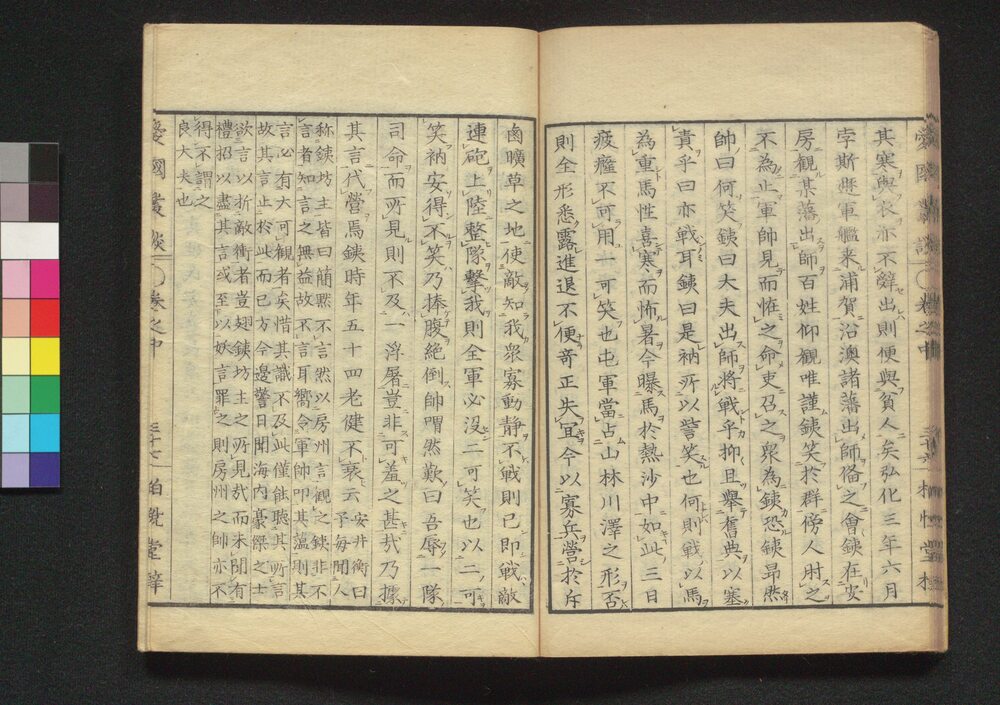 其寒與衣亦不辭出則便與貧人矣弘化三年六月
孛斯遣軍艦来浦賀沿澳諸藩出師備之會銕在安
房觀某藩出師百姓仰觀唯謹銕笑於群傍人肘之
不為止軍師見而恠之命吏召之衆為銕恐銕昻然
帥曰何笑銕曰大夫出師將戰乎抑且舉舊典以塞
責乎曰亦戰耳銕曰是衲所以訾笑也何則戰以馬
為重馬性喜寒而怖暑今曝馬於熱沙中如此三日
疲癨不可用一可笑也屯軍當占山林川澤之形否
則全形悉露進退不便奇正失冝今以寡兵營於斥
鹵曠草之地使敵知我衆寡動靜不戰則已即戰敵
連砲上陸整隊擊我則全軍必没二可笑也以二可
笑衲安得不笑乃捧腹絶倒帥喟然歎曰吾辱一隊
司命而所見則不及一浮屠豈非可羞之甚哉乃據
其言代營焉銕時年五十四老健不衰云
安井衡曰
予每聞人
称銕坊主皆曰簡黙不言然以房州言觀之銕非不
言者知言之無益故不言耳嚮令軍帥叩其蘊則其
言必有大可觀者矣惜其識不及此僅能聽其所言
故其言止於此而已方今邊警日聞海内豪傑之士
欲言以折敵衝者豈翅銕坊主之所見哉而未聞有
禮招以盡其言或至以妖言罪之則房州之帥亦不
得不謂之
良大夫也
卷之中